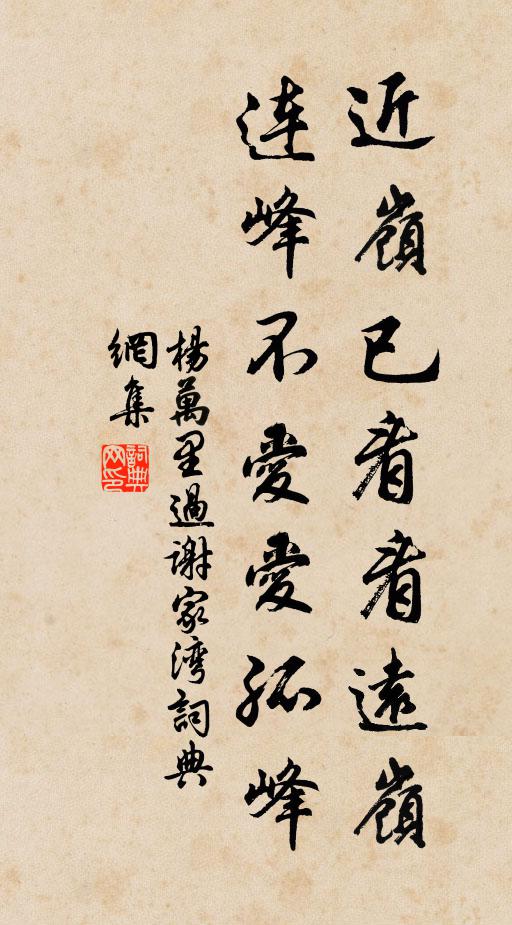 近嶺已看看遠嶺
連峰不愛愛孤峰
楊萬里過謝家湾詞典
網集
詞典網印